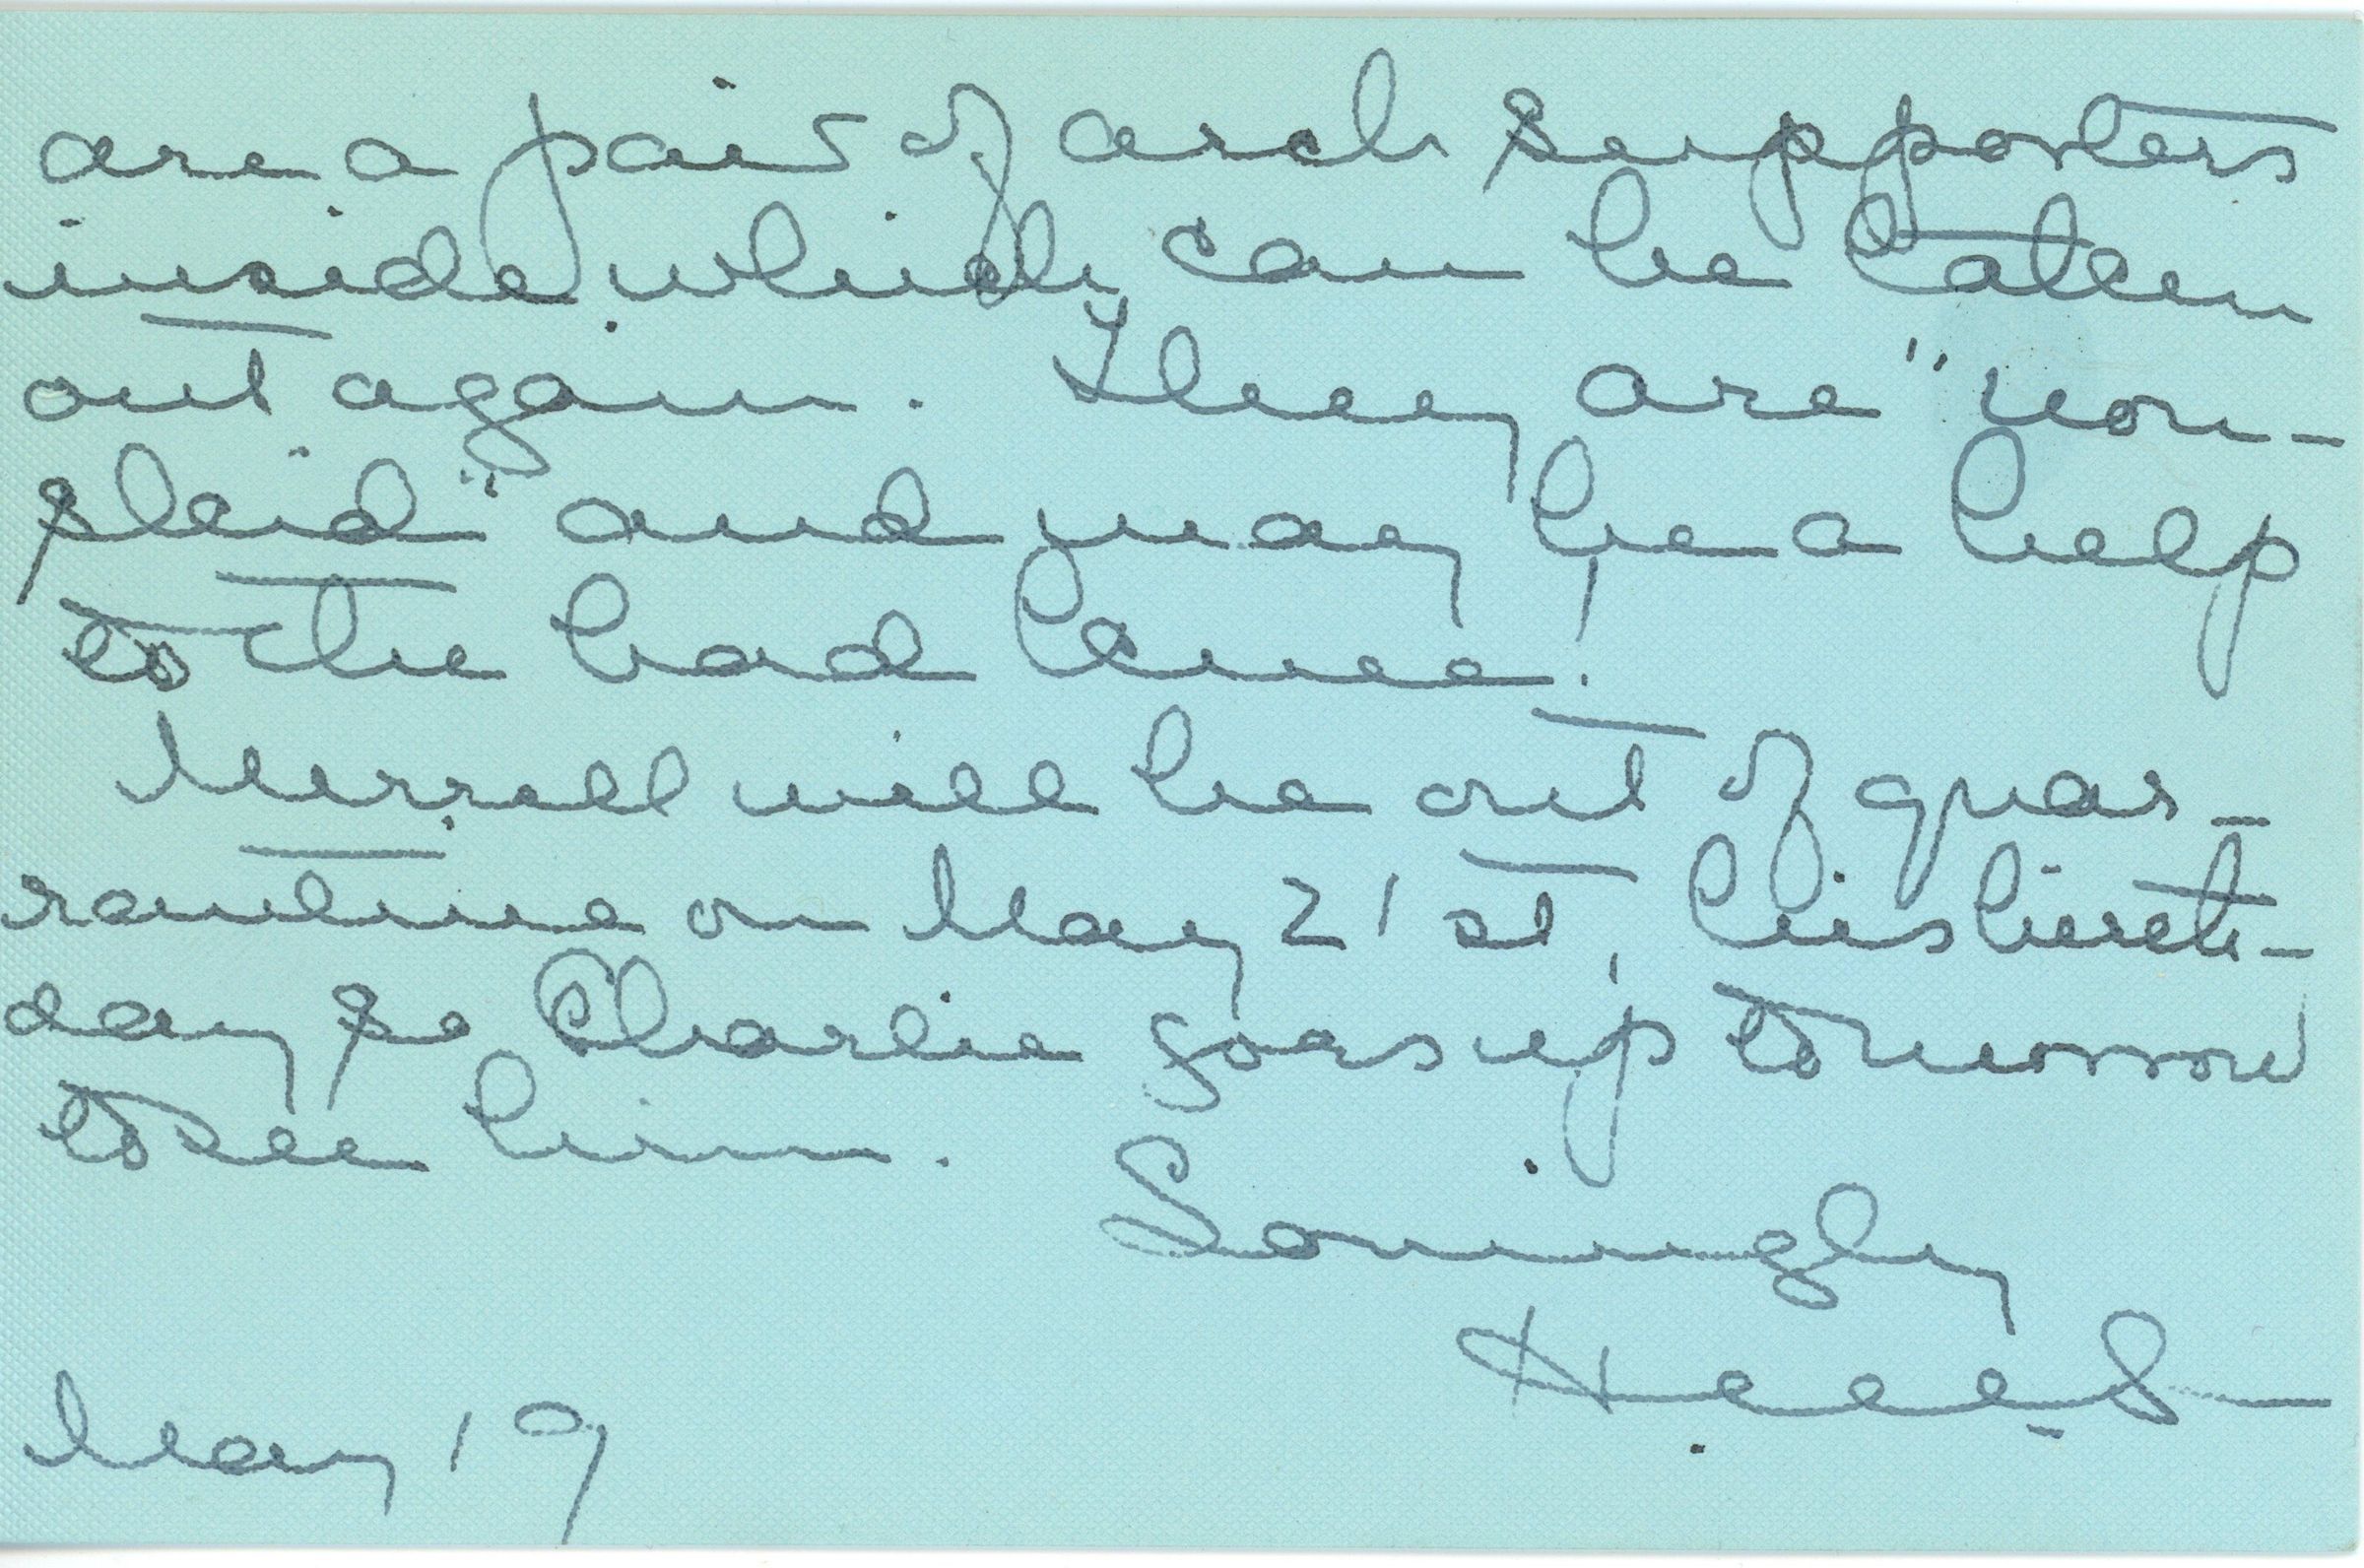 are a pair of arch supporters
inside which can be taken
out again. They are "non-
skid" and may be a help
to the bad knee!
Merrell will be out of quar-
rantine on May 21st, his birth-
day so Charlie goes up tomorrow
to see him.
Lovingly
May 19